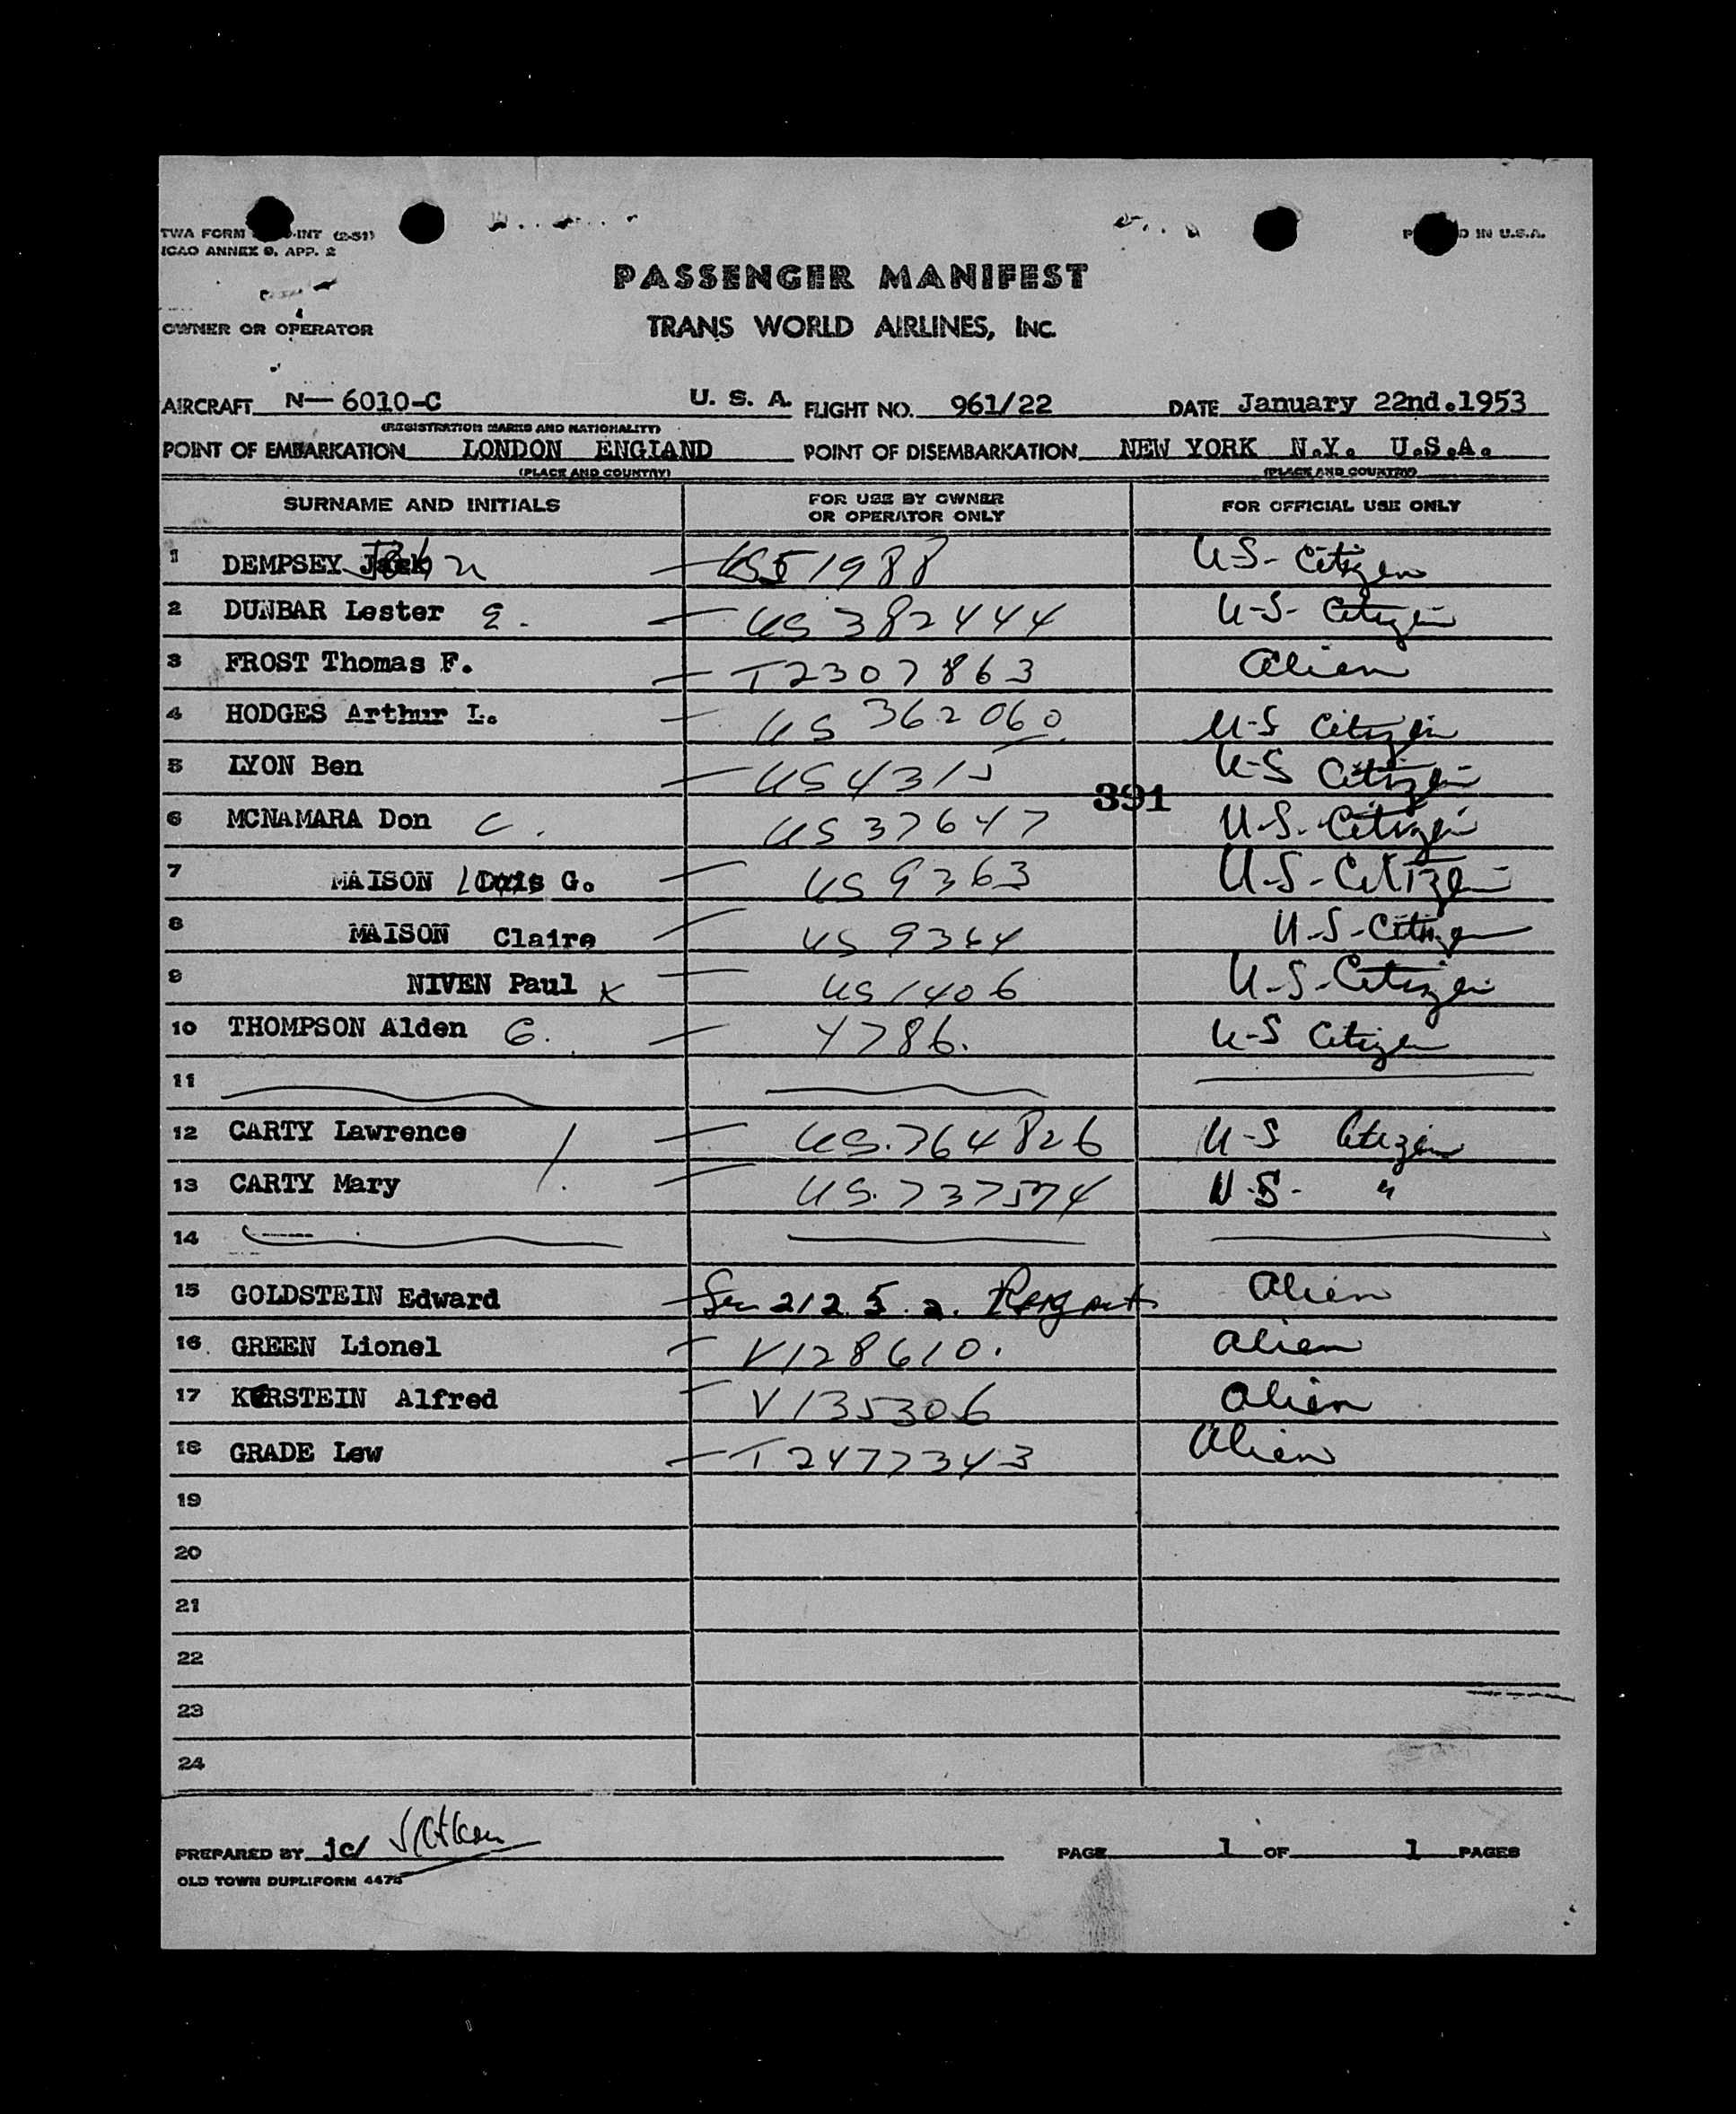 TWA FORM INT (2-51)
ICAO ANNEX 9, APP. 2
D IN U.S.A.
PASSENGER MANIFEST
OWNER OR OPERATOR
TRANS WORLD AIRLINES, INC.
AIRCRAFT N— 6010-C U. S. A. FLIGHT NO. 961/22 DATE January 22nd.1953
(REGISTRATION MARKS AND NATIONALITY)
POINT OF EMBARKATION LONDON ENGLAND POINT OF DISEMBARKATION NEW YORK N.Y. U.S.A.
(PLACE AND COUNTRY) (PLACE AND COUNTRY)
SURNAME AND INITIALS FOR USE BY OWNER OR OPERATOR ONLY FOR OFFICIAL USE ONLY
1 DEMPSEY John 1988 U-S- Citizen
2 DUNBAR Lester E. US 382444 U-S- Citizen
3 FROST Thomas F. T2307863 Alien
4 HODGES Arthur L. US 362060 U-S Citizen
5 LYON Ben US 4315 U-S Citizen
391
6 MCNAMARA Don C. US 37647 U.S. Citizen
7 MAISON G. US 9363 U-S-Citizen
8 MAISON Claire US 9364 U-S-Citizen
9 NIVEN Paul K US 1406 U-S-Citizen
10 THOMPSON Alden G. 4786. U-S Citizen
11
12 CARTY Lawrence US.764826 U-S Citizen
13 CARTY Mary US.737574 U-S- "
14
15 GOLDSTEIN Edward 212.5.a. Alien
16. GREEN Lionel V128610. Alien
17 KERSTEIN Alfred V135306 Alien
18 GRADE Lew T2477343 Alien
19
20
21
22
23
24
PREPARED BY jc/ PAGE 1 OF 1 PAGES
OLD TOWN DUPLIFORM